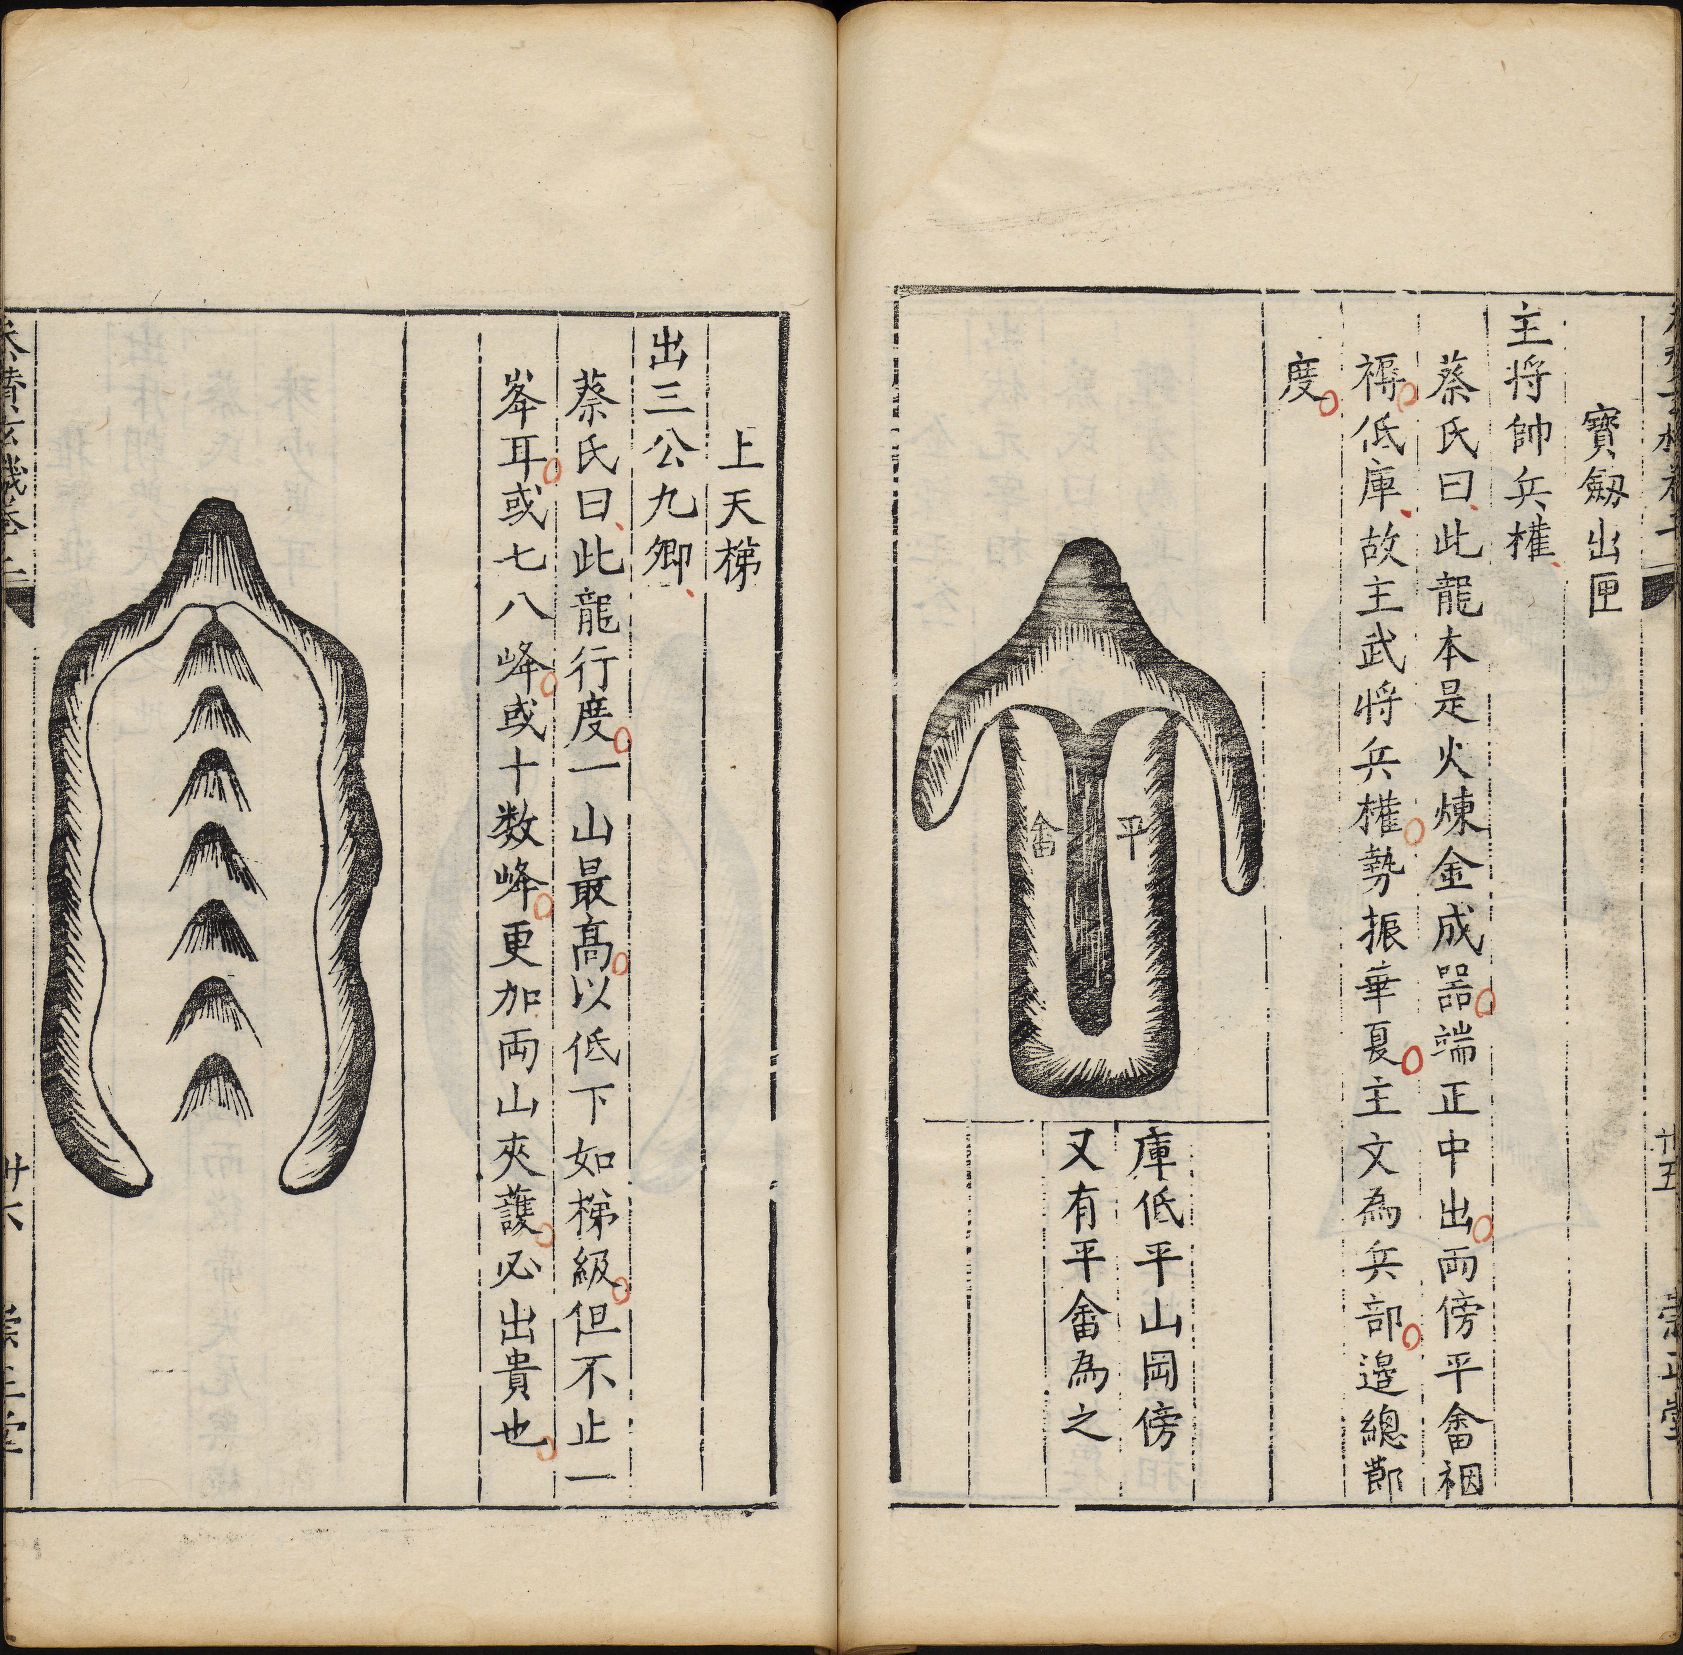 寶劔出匣
主將帥兵權
蔡氏曰此龍本是火煉金成器端正中出両傍平畬裀
褥低庫故主武將兵權勢振華夏主文為兵部邉總
度
平
畬
庫低平山岡傍
又有平畬為之
廿五
崇正堂
上天梯
出三公九卿
蔡氏曰此龍行度一山最髙以低下如梯級但不止一
峯耳或七八峰或十数峰更加両山夾護必出貴也
廿六